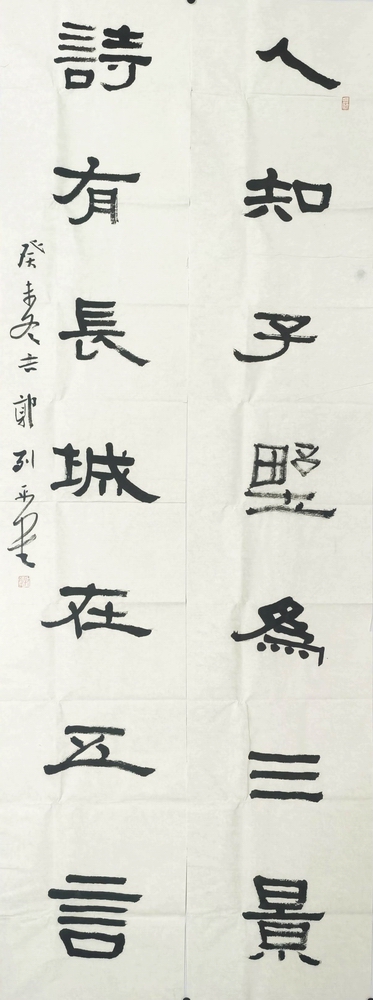 人知子野為三景
詩有長城在五言
癸未冬吉郭列平書